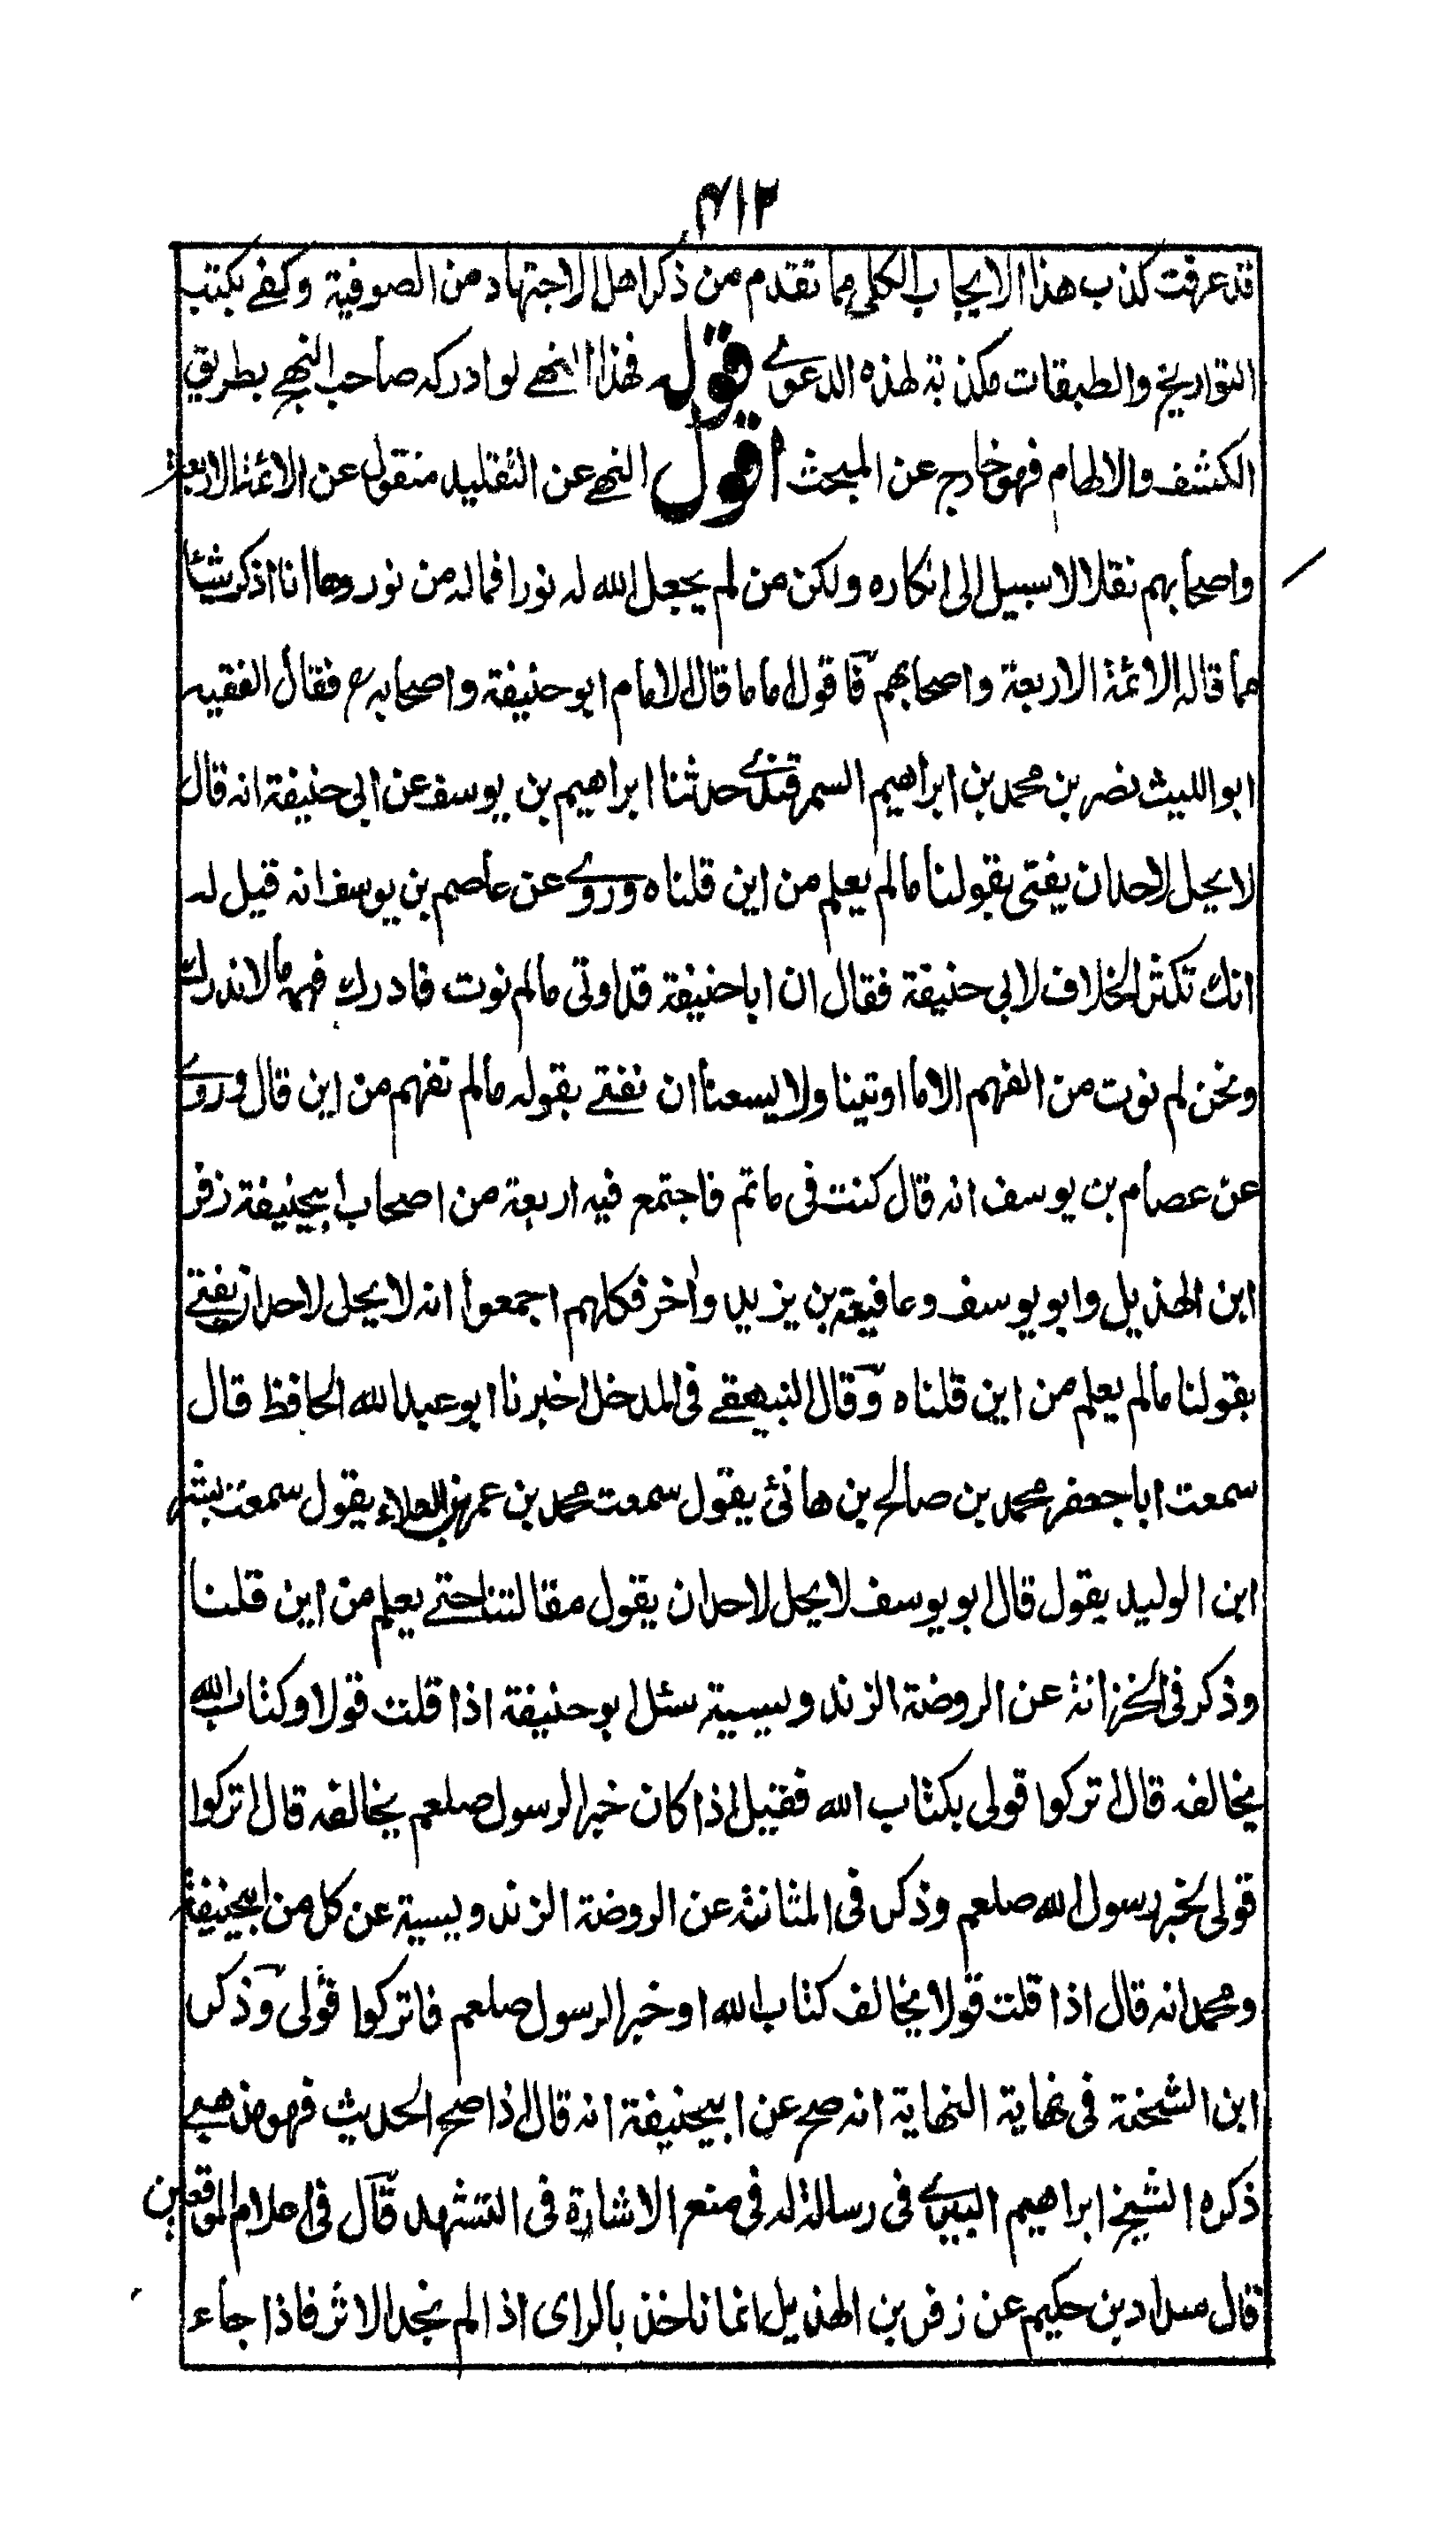 ۴۱۲
قد عرفت كذب هذا الايجاب الكلى مما تقدم من ذكر اهل الاجتهاد من الصوفية وكفى بكتب
التواريخ والطبقات مكذبة لهذه الدعوى قوله فهذا النهى لو ادركه صاحب النهى بطريق
الكشف والالهام فهو خارج عن المبحث اقول النهى عن التقليد منقول عن الائمة الاربعة
واصحابهم نقلا لا سبيل الى انكاره ولكن من لم يجعل الله له نورا فما له من نور وها انا اذكر شيئا
مما قاله الائمة الاربعة واصحابهم فاقول اما ما قال الامام ابو حنيفة واصحابه رح فقال الفقيه
ابو الليث نصر بن محمد بن ابراهيم السمرقندى حدثنا ابراهيم بن يوسف عن ابى حنيفة انه قال
لا يحل لاحد ان يفتى بقولنا ما لم يعلم من اين قلناه وروى عن عاصم بن يوسف انه قيل له
انك تكثر الخلاف لابى حنيفة فقال ان ابا حنيفة قد اوتى ما لم نوت فادرك فهمه ما لا ندرك
ونحن لم نوت من الفهم الا ما اوتينا ولا يسعنا ان نفتى بقوله ما لم نفهم من اين قال وروى
عن عصام بن يوسف انه قال كنت فى ماتم فاجتمع فيه اربعة من اصحاب ابيحنيفة زفر
ابن الهذيل وابو يوسف وعافية بن يزيد واخر فكلهم اجمعوا انه لا يحل لاحد ان يفتى
بقولنا ما لم يعلم من اين قلناه وقال البيهقى فى المدخل اخبرنا ابو عبد الله الحافظ قال
سمعت ابا جعفر محمد بن صالح بن هانئ يقول سمعت محمد بن عمر بن العلاء يقول سمعت بشر
ابن الوليد يقول قال ابو يوسف لا يحل لاحد ان يقول مقالتنا حتى يعلم من اين قلنا
وذكر فى الخزانة عن الروضة الزندويسية سئل ابو حنيفة اذا قلت قولا وكتاب الله
يخالفه قال اتركوا قولى بكتاب الله فقيل اذا كان خبر الرسول صلعم يخالفه قال اتركوا
قولى بخبر رسول الله صلعم وذكر فى المتانة عن الروضة الزندويسية عن كل من ابيحنيفة
ومحمد انه قال اذا قلت قولا يخالف كتاب الله او خبر الرسول صلعم فاتركوا قولى وذكر
ابن الشحنة فى نهاية النهاية انه صح عن ابيحنيفة انه قال اذا صح الحديث فهو مذهبى
ذكره الشيخ ابراهيم البيرى فى رسالة له فى منع الاشارة فى التشهد قال فى اعلام الموقعين
قال شداد بن حكيم عن زفر بن الهذيل انما ناخذ بالراى اذا لم نجد الاثر فاذا جاء